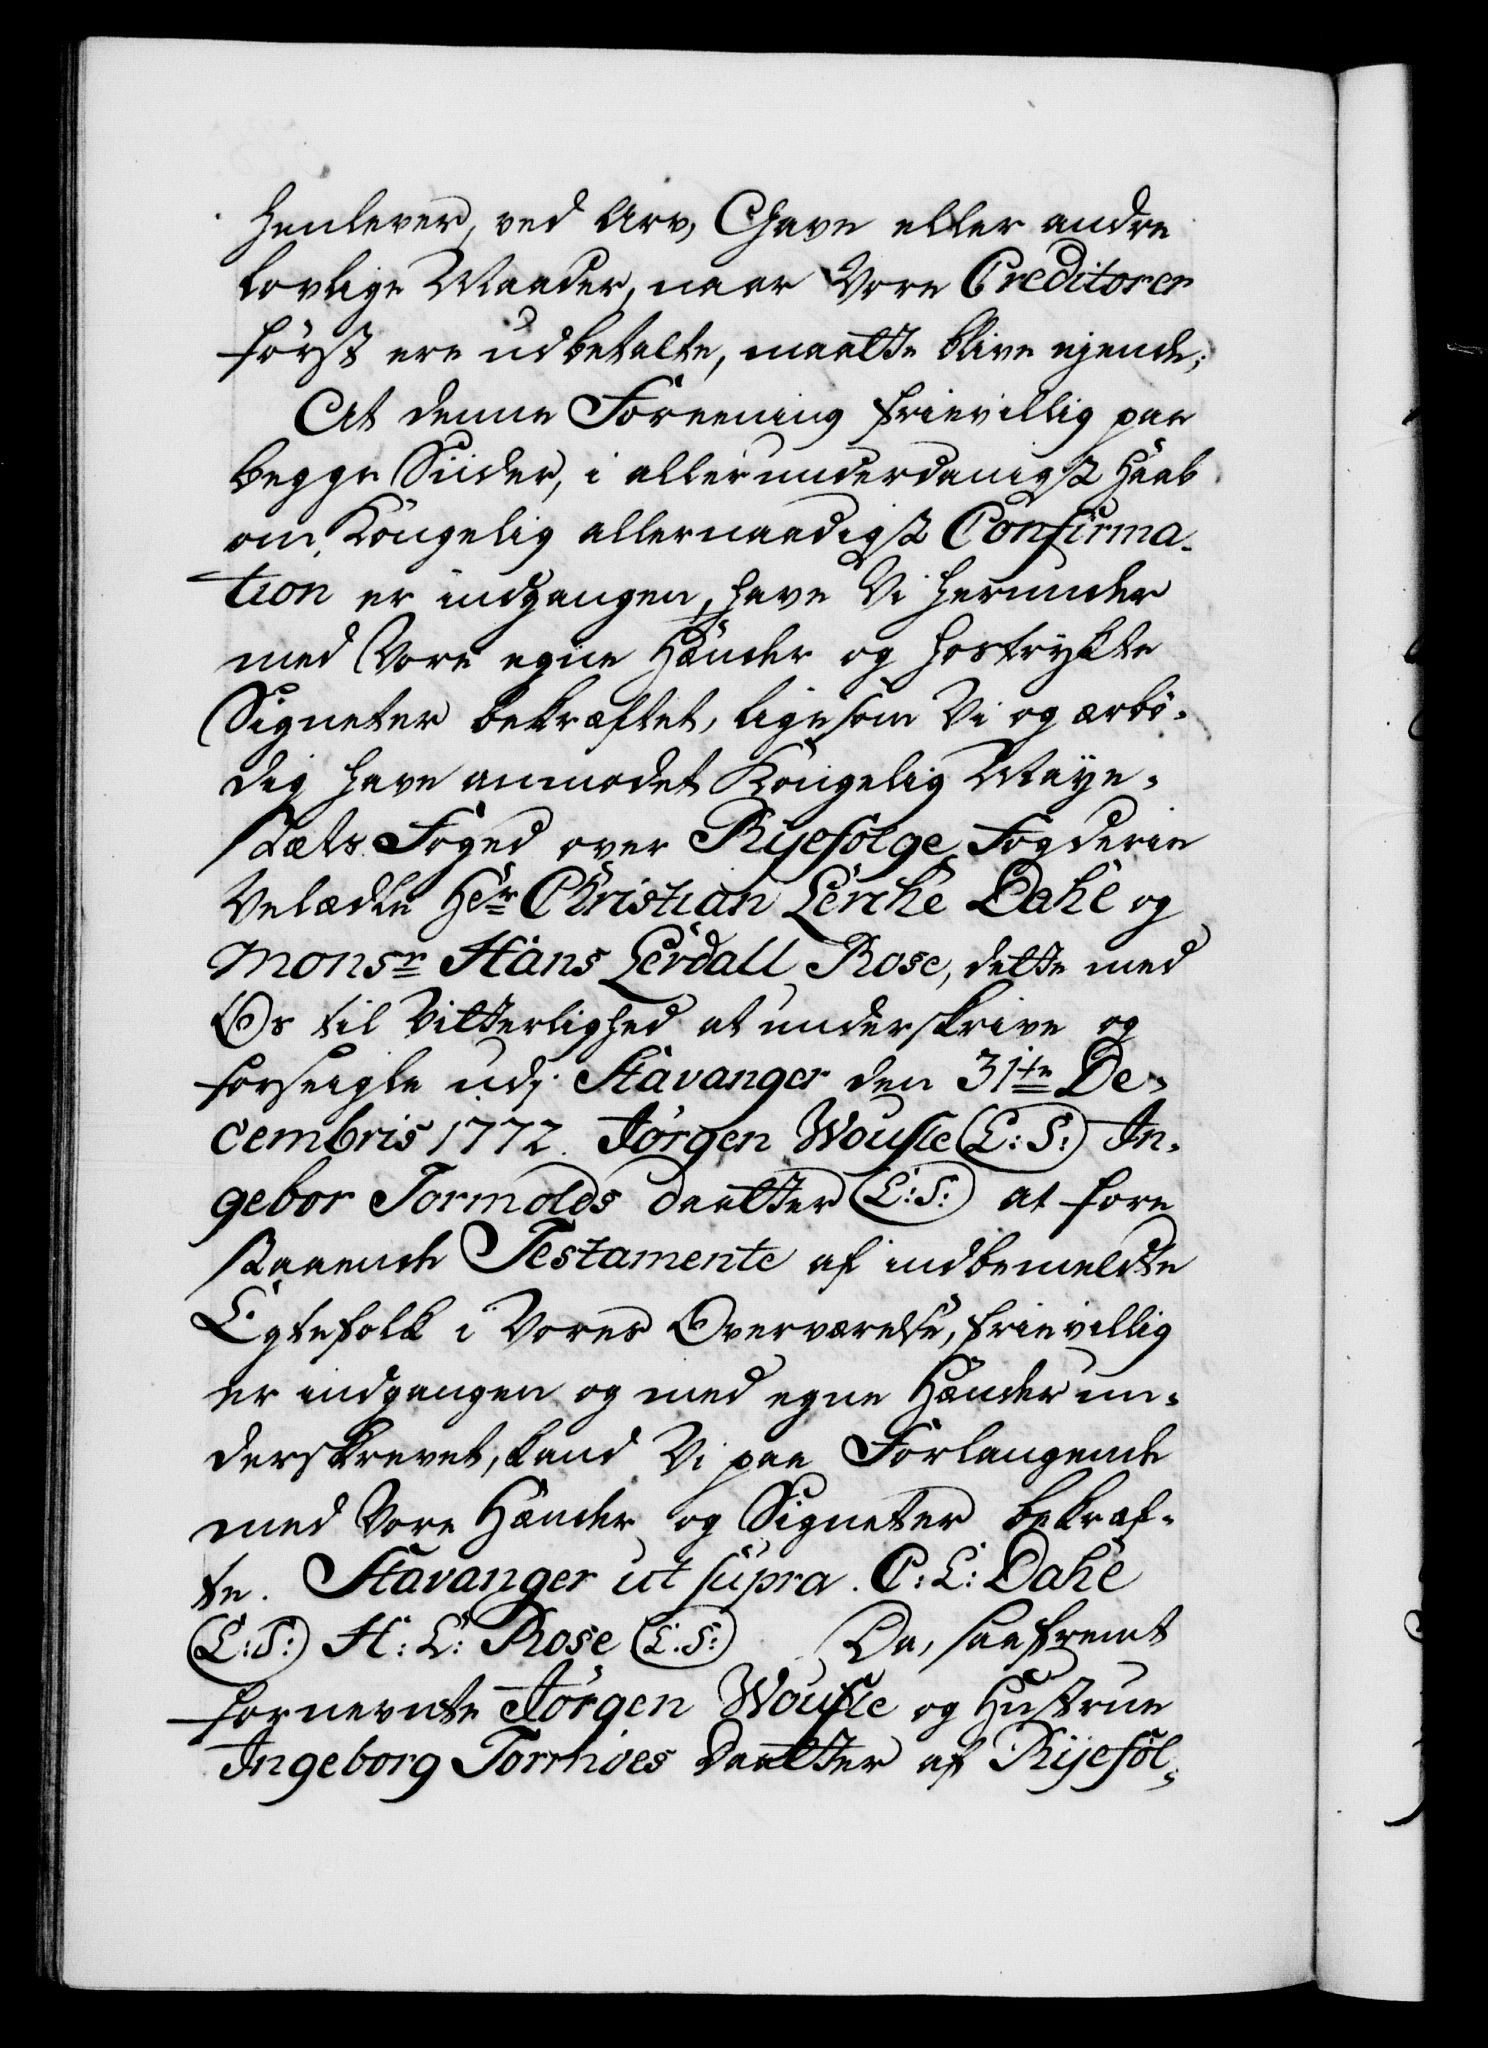 henlever, ved Arv, Gave eller andre
lovlige Maader, naar Vore Creditorer
först ere udbetalte, maatte blive ejende;
At denne Foreening frievillig paa
begge Siider, i allerunderdanigst Haab
om Kongelig allernaadigst Confirma-
tion er indgangen, have Vi herunder
med Vore egne Hænder og hostrykte
Signeter bekræftet, ligesom Vi og ærbö-
dig have anmodet Kongelig Maye-
stæts Foged over Ryefölge Fogderie
Velædle Hr Christian Lerche Dahl og
Monsr Hans Lerdall Rose, dette med
Os til Vitterlighed at underskrive og
forseigle udj Stavanger den 31te De-
cembris 1772. Jörgen Wousle (L:S:) In-
gebor Tormolds Daatter (L:S:) at fore
staaende Testamente af indbemeldte
Egtefolk i Vores Overværelse, frievillig
er indgangen og med egne Hænder un-
derskrevet, kand Vi paa Forlangende
med Vore Hænder og Signeter bekræf-
te. Stavanger ut supra. C: L: Dahl
(L:S:) H: L: Rose (L:S:) Da, saafremt
fornevnte Jörgen Wousle og Hustrue
Ingeborg Tormoes Daatter af Ryeföl-